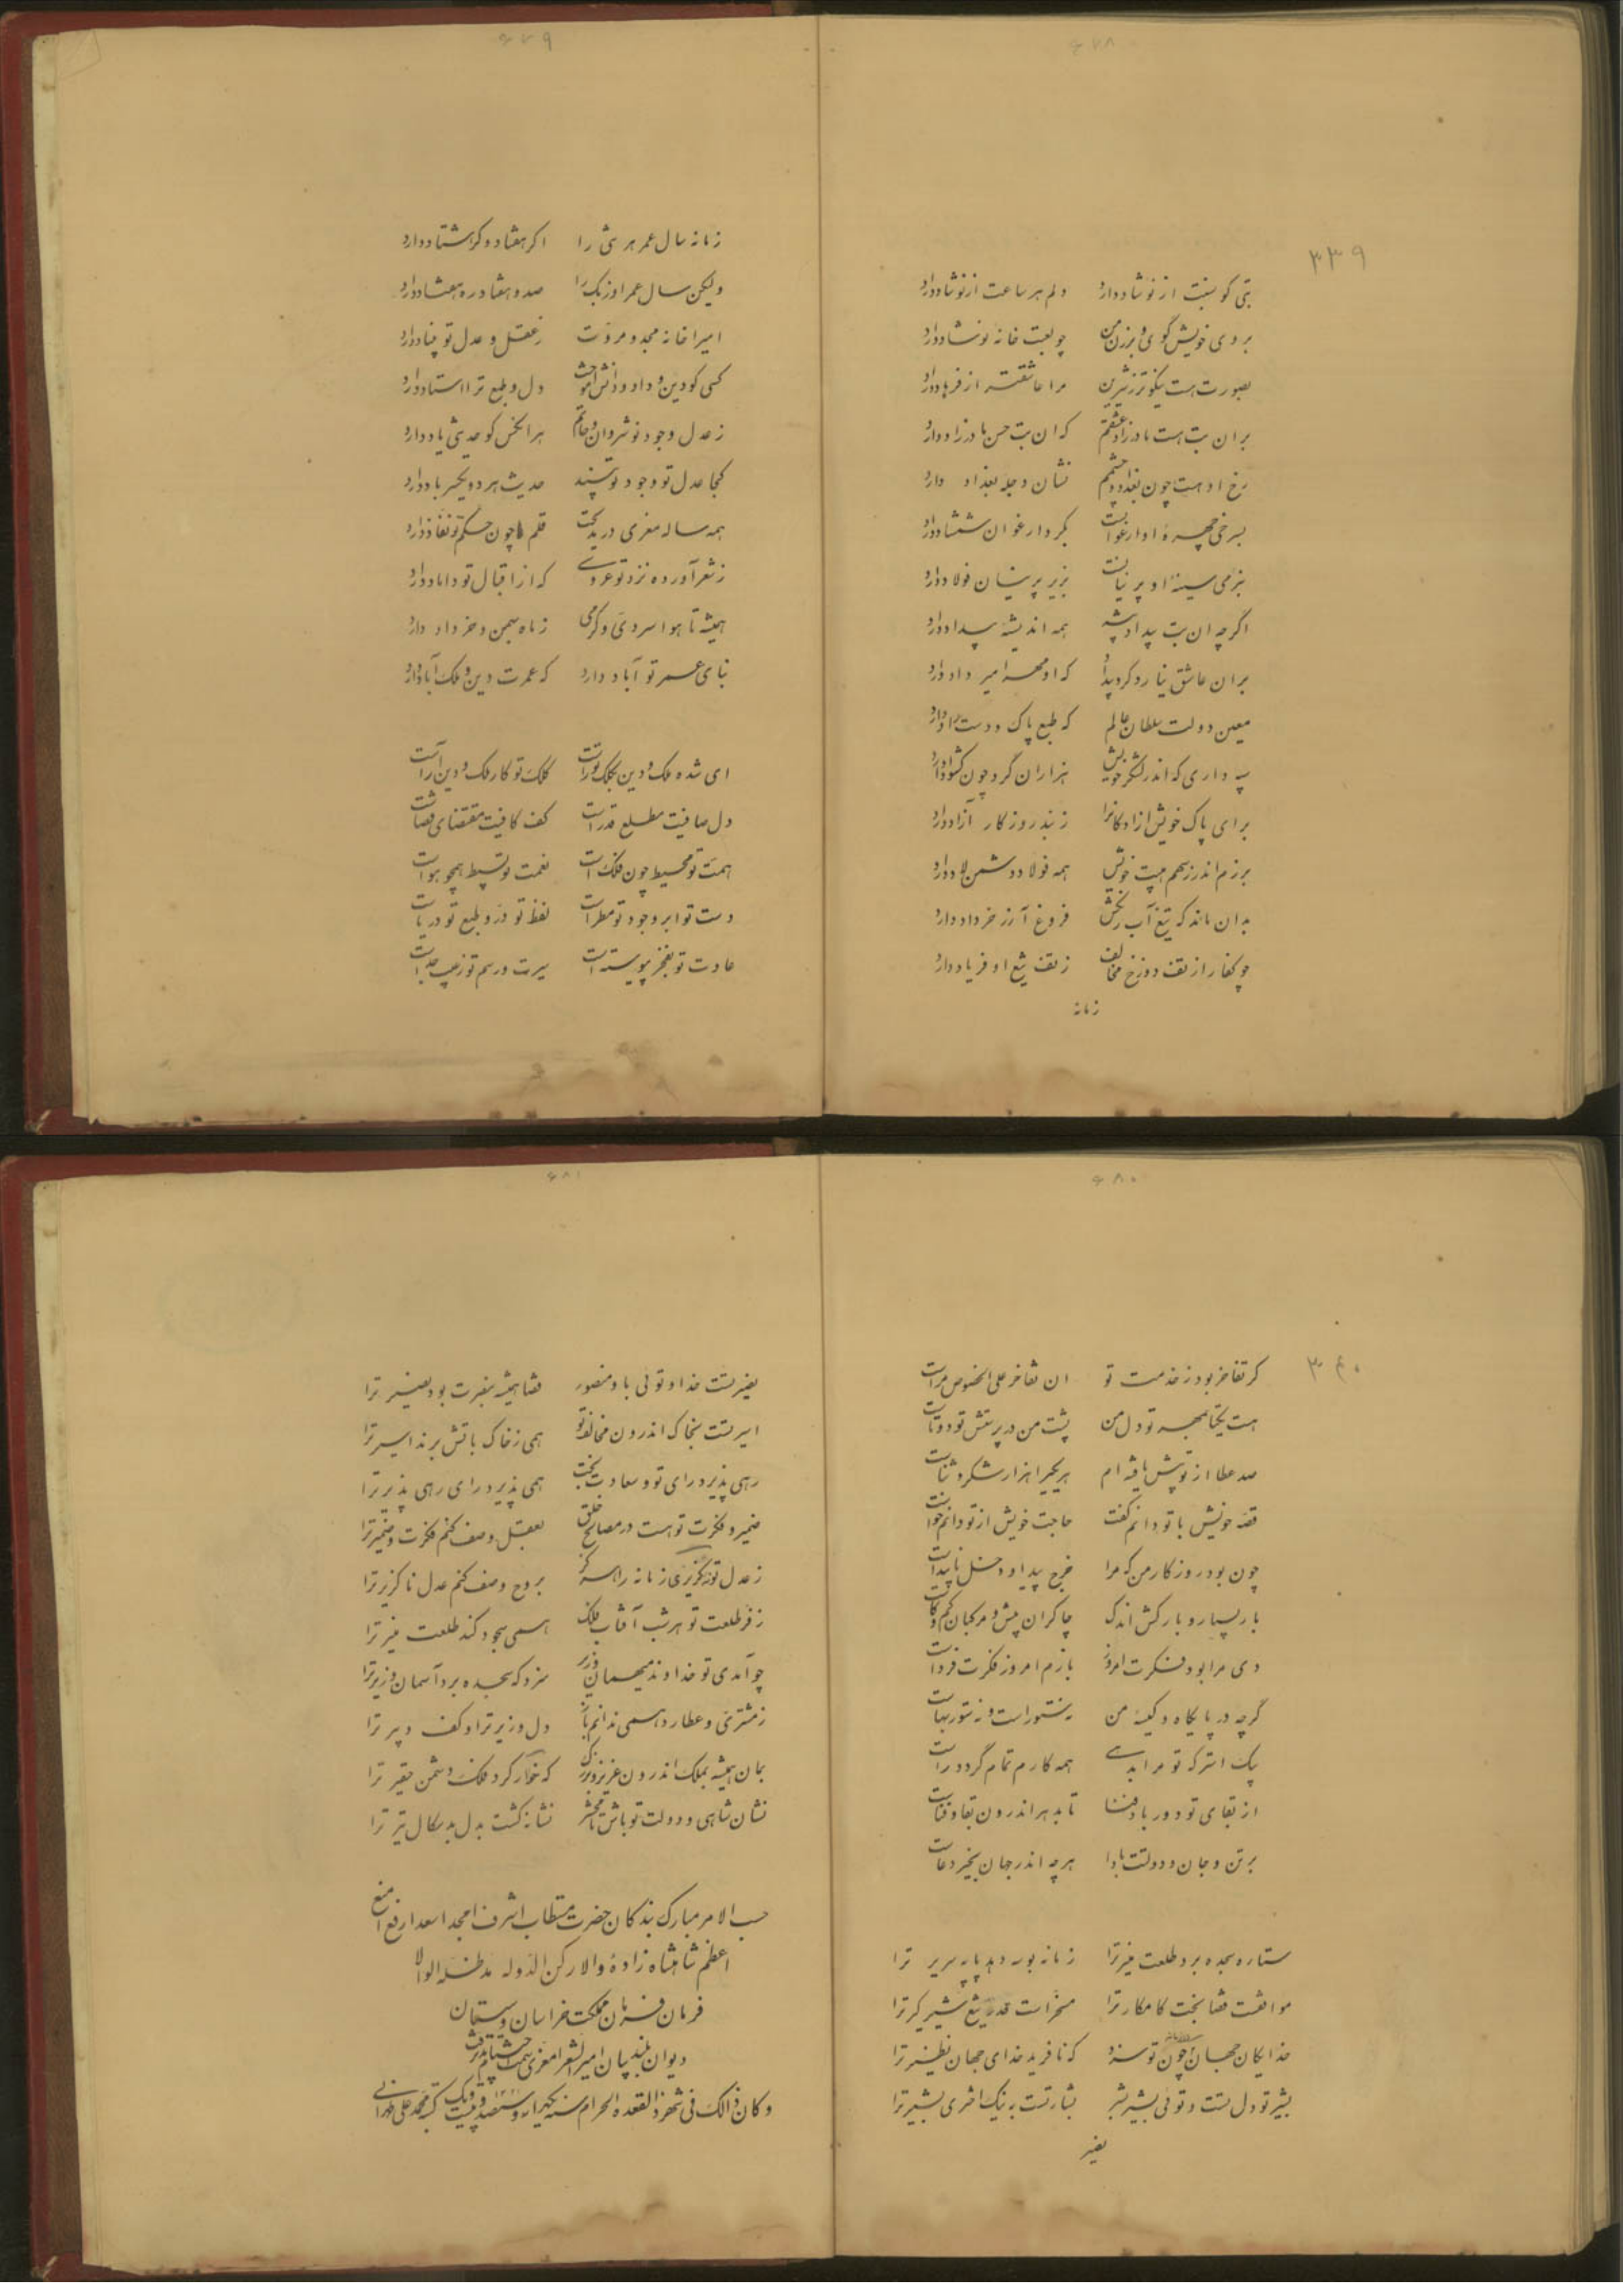 ۶۷۸
۳۳۹
بتی کو نسبت از نوشاد دارد دلم هر ساعت از نو شاد دارد
بروی خویش کوی و برزن من چو لعبت خانه نوشاد دارد
بصورت هست نیکوتر ز شیرین مرا عاشقتر از فرهاد دارد
بران بت هست مادرزاد عشقم که ان بت حسن مادرزاد دارد
رخ او هست چون بغداد و چشمم نشان دجله بغداد دارد
بسرخی چهره او ارغوانست بگرد ارغوان شمشاد دارد
بنرمی سینه او پرنیانست بزیر پرنیان فولاد دارد
اگرچه ان بت بیداد پیشه همه اندیشه بیداد دارد
بران عاشق نیارد کرد بیداد که او مهر امیر داد دارد
معین دولت سلطان عالم که طبع پاک و دست راد دارد
سپه داری که اندر لشکر خویش هزاران گرد چون کشواد دارد
برای پاک خویش ازادکانرا ز بند روزکار آزاد دارد
برزم اندر ز سهم هیبت خویش همه فولاد دشمن لاد دارد
بدان ماند که تیغ آب رنکش فروغ آذر خرداد دارد
چو کفار از تف دوزخ مخالف ز تف تیغ او فریاد دارد
زمانه
۶۷۹
زمانه سال عمر هر شهی را اکر هفتاد وکر هشتاد دارد
ولیکن سال عمر اوز یک را صد و هفتاد ره هشتاد دارد
امیرا خانه مجد و مروت ز عقل و عدل تو بنیاد دارد
کسی کو دین و داد و دانش آموخت دل و طبع ترا استاد دارد
ز عدل و جود نوشروان و حاتم هر انکس کو حدیثی یاد دارد
کجا عدل تو و جود تو بیند حدیث هر دو یکسر باد دارد
همه ساله معزی در مدیحت قلم چون حکم تو نفاذ دارد
ز شعر آورده نزد تو عروسی که از اقبال تو داماد دارد
همیشه تا هوا سردی و گرمی ز ماه بهمن و خرداد دارد
بنای عمر تو آباد دارد که عمرت دین و ملک آباد دارد
ای شده ملک و دین بکلک تو راست کلک تو کار ملک و دین آراست
دل صافیت مطلع قدرست کف کافیت مقتضای قضاست
همت تو محیط چون فلک است نعمت تو بسیط همچو هواست
دست تو ابر و جود تو مطر است لفظ تو در و طبع تو دریاست
عادت تو بفخر پیوسته است سیرت و رسم تو ز عیب جداست
۶۸۰
۳۴۰
کر تفاخر بود ز خدمت تو ان تفاخر علی الخصوص مراست
هست یکتا بمهر تو دل من پشت من در پرستش تو دوتاست
صد عطا از تو بیش یافته ام هر یکیرا هزار شکر و ثناست
قصه خویش با تو دانم کفت حاجت خویش از تو دانم خواست
چون بود روزکار من که مرا خرج پیدا و دخل ناپیداست
بار بسیار و بارکش اندک چاکران بیش و مرکبان کم و کاست
دی مرا بود فکرت امروز بازم امروز فکرت فرداست
گرچه در پایکاه و کیسه من نه ستور است و نه ستور بهاست
یک اشترکه تو مرا بدهی همه کارم تمام گردد راست
از بقای تو دور باد فنا تا بدهر اندرون بقا و فناست
بر تن و جان و دولتت بادا هرچه اندر جهان بخیر دعاست
ستاره سجده برد طلعت منیر ترا زمانه بوسه دهد پایه سریر ترا
موافقست قضا بخت کامکار ترا مسخر است قدر تیغ شیر کیر ترا
خدایکان جهان چون تو سزد که نافرید خدای جهان نظیر ترا
بشیر تو دل تست و توئی بشیر بشر بشارتست به نیک اختری بشیر ترا
بغیر
۶۸۱
بغیر تست خدا و توئی باو منصور قضا همیشه بغیرت بود بغیر ترا
اسیر تست بخاک اندرون مخالف تو همی ز خاک باتش برند اسیر ترا
رهی پذیرد رای تو و سعادت بخت همی پذیرد رای رهی پذیر ترا
ضمیر و فکرت تو هست در مصالح خلق بعقل وصف کنم فکرت و ضمیر ترا
ز عدل تو نکزیری زمانه را هرکز بروح وصف کنم عدل ناکزیر ترا
ز فر طلعت تو هر شب آفتاب فلک همی سجود کند طلعت منیر ترا
چو آمدی تو خداوند میهمان وزیر سزد که سجده برد آسمان وزیر ترا
ز مشتری و عطارد همی ندانم باز دل وزیر ترا و کف دبیر ترا
بمان همیشه بملک اندرون عزیز و بزرک که خوار کرد فلک دشمن حقیر ترا
نشان شاهی و دولت تو باش تا محشر نشانه کشت دل بد سکال تیر ترا
حسب الامر مبارک بندکان حضرت مستطاب اشرف امجد اسعد ارفع امنع
اعظم شاهنشاه زاده والا رکن الدوله مد ظله الوالا
فرمان فرمان مملکت خراسان و سیستان
دیوان بلند بیان امیر الشعرا معزی سمت اختتام پذیرفت
و کان ذالک فی شهر ذالقعده الحرام سنه یکهزار و سیصد و بیست و یک ۱۳۲۱ کتبه محمد علی طهرانی